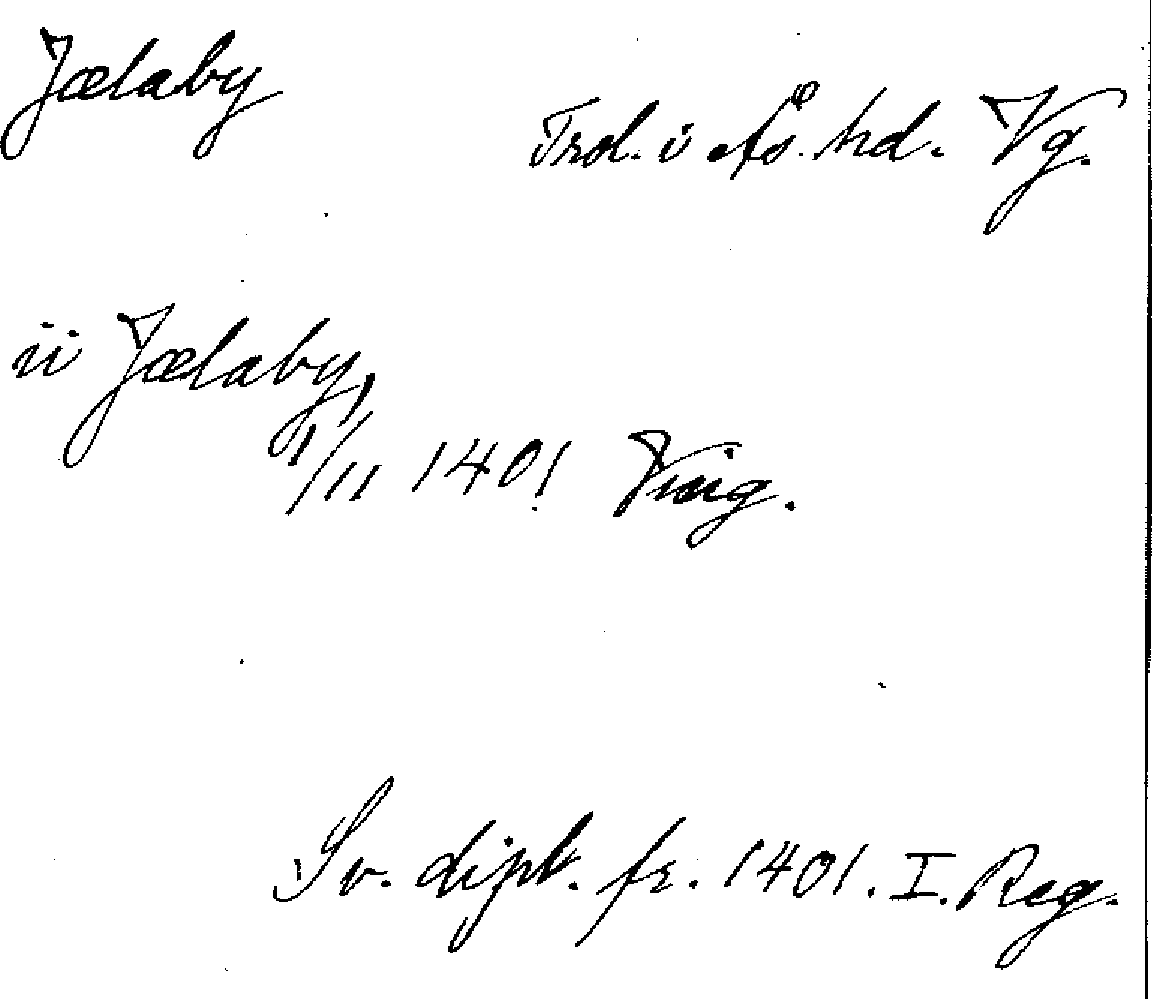 Jælaby
Trol. i Ås. hd. Vg.
ii Jælaby,
1/11 1401 Ving.
Sv. dipl. fr. 1401. I. Reg.